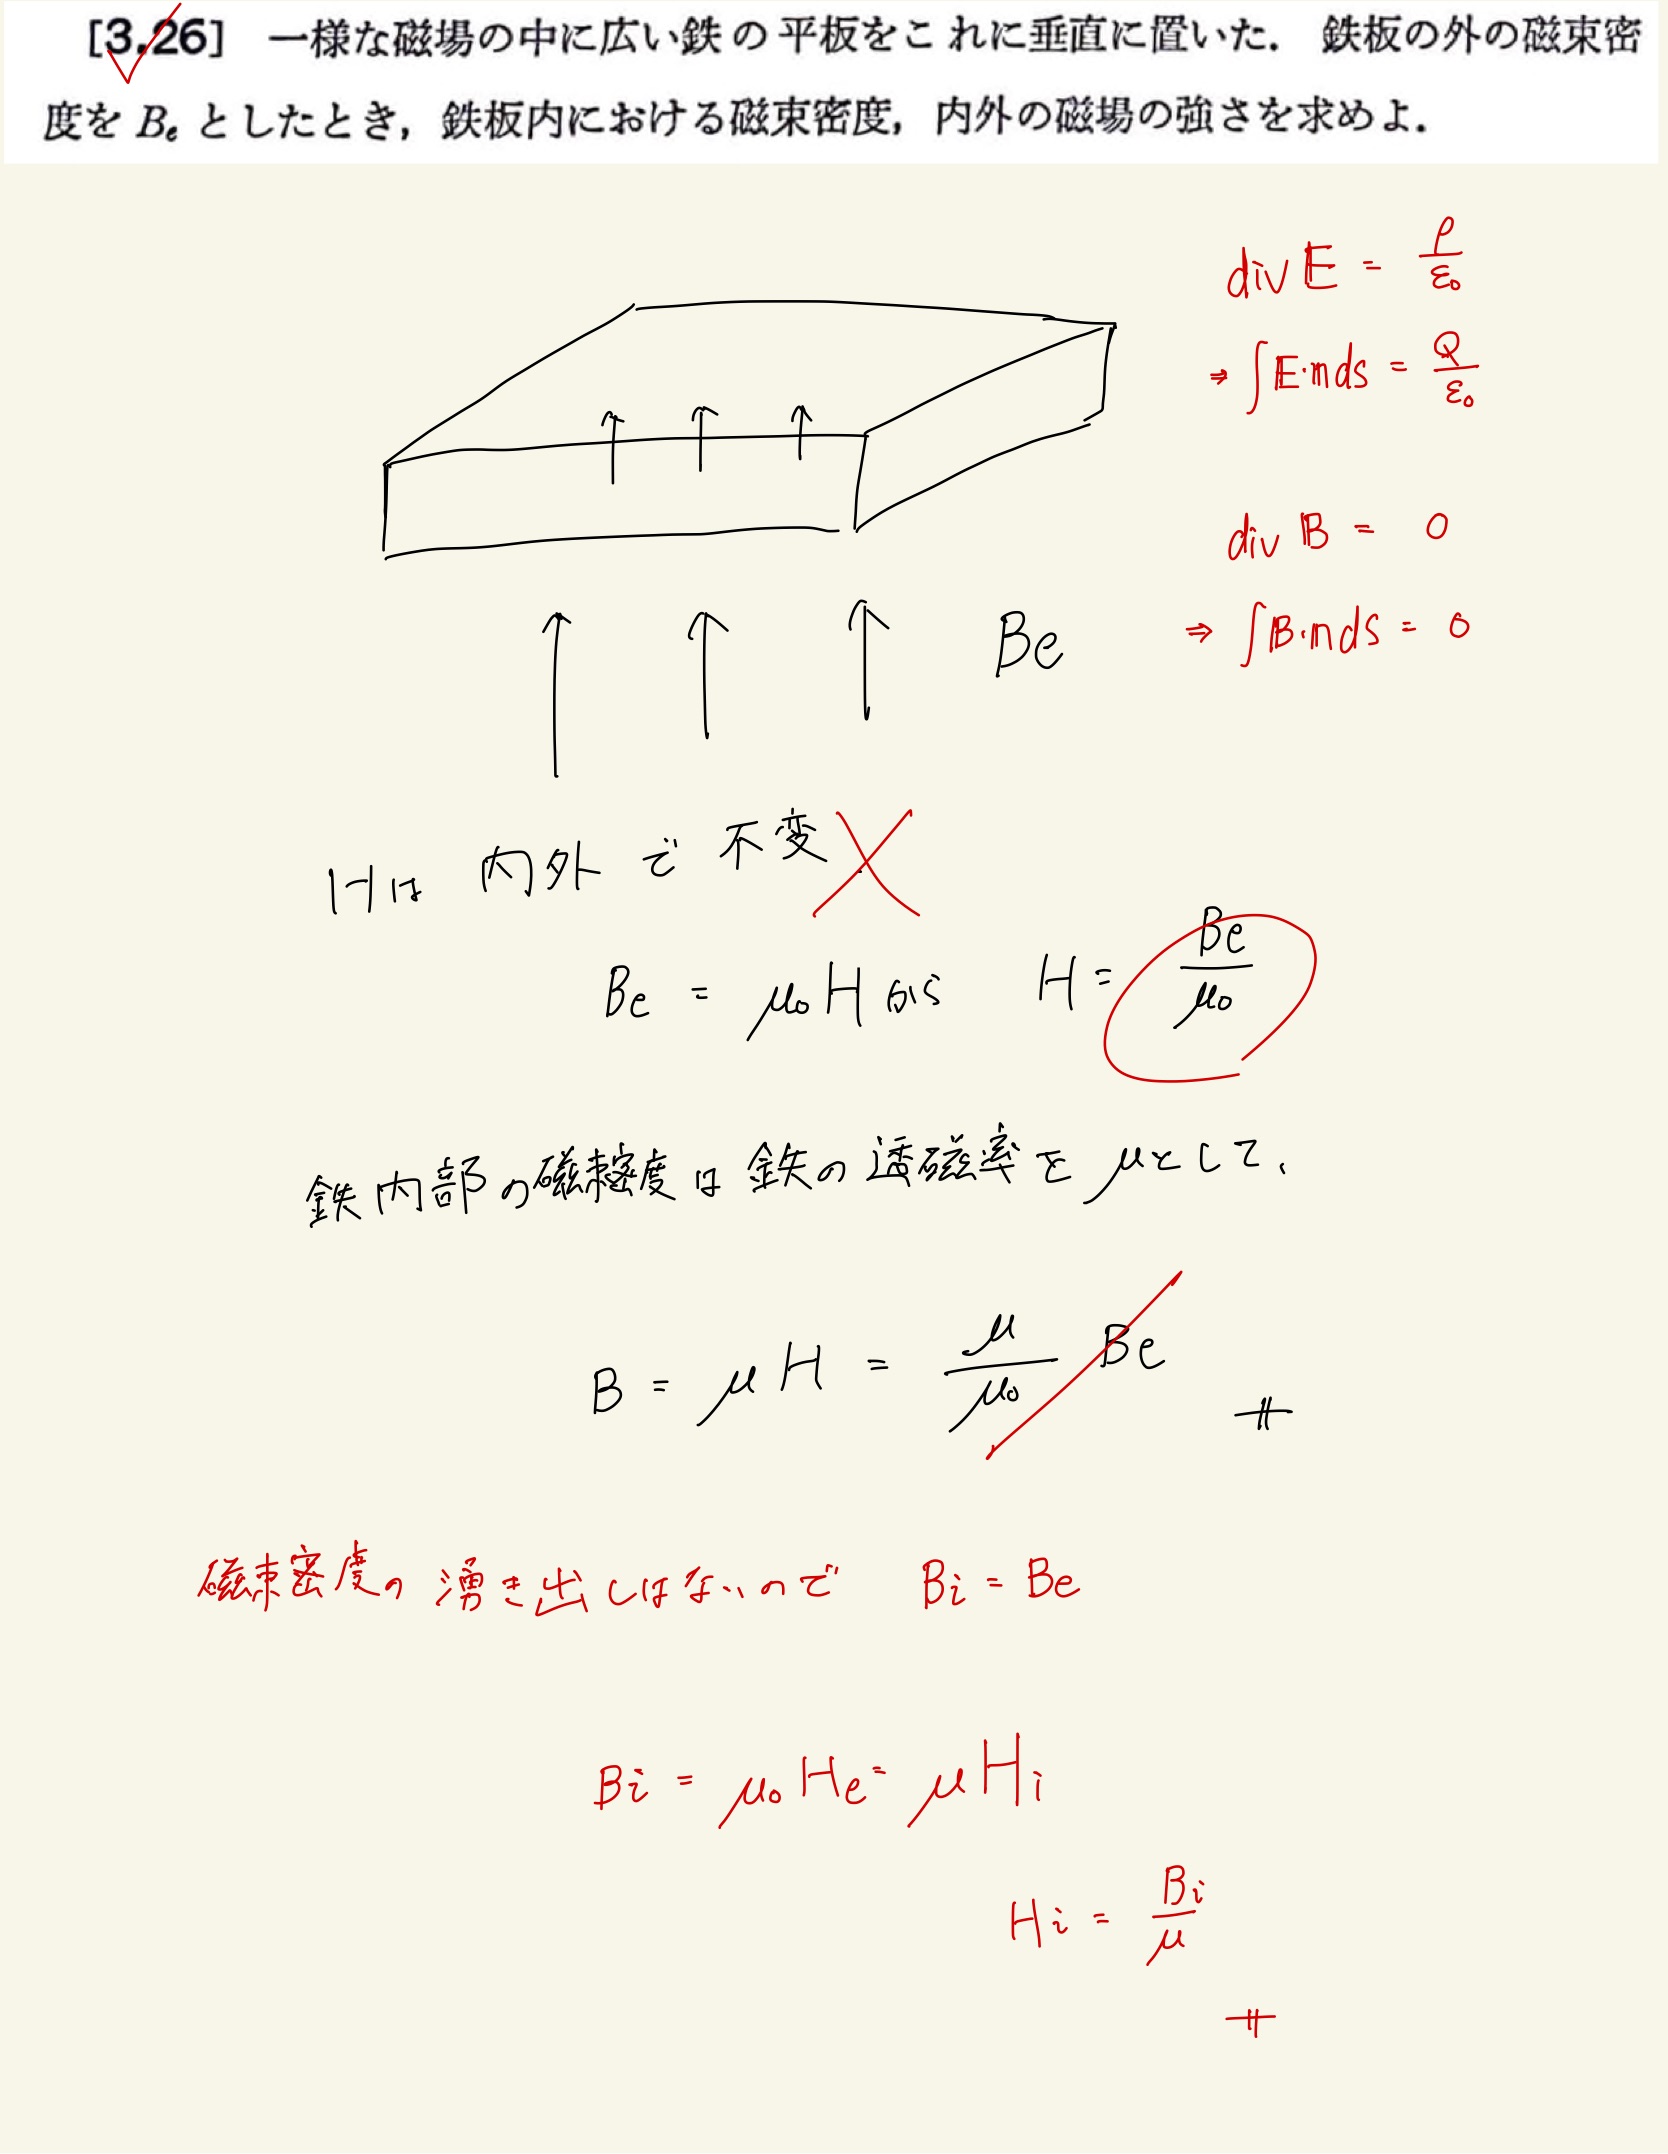 [3.26] 一様な磁場の中に広い鉄の平板をこれに垂直に置いた. 鉄板の外の磁束密
度を Be としたとき, 鉄板内における磁束密度, 内外の磁場の強さを求めよ.
div E = ρ/ε₀
⇒ ∫E·n ds = Q/ε₀
div B = 0
⇒ ∫B·n ds = 0
Be
Hは 内外で 不変
Be = μ₀H から H = Be/μ₀
鉄内部の磁束密度は鉄の透磁率をμとして、
B = μH = μ/μ₀ Be
磁束密度の湧き出しはないので Bi = Be
Bi = μ₀He = μHi
Hi = Bi/μ